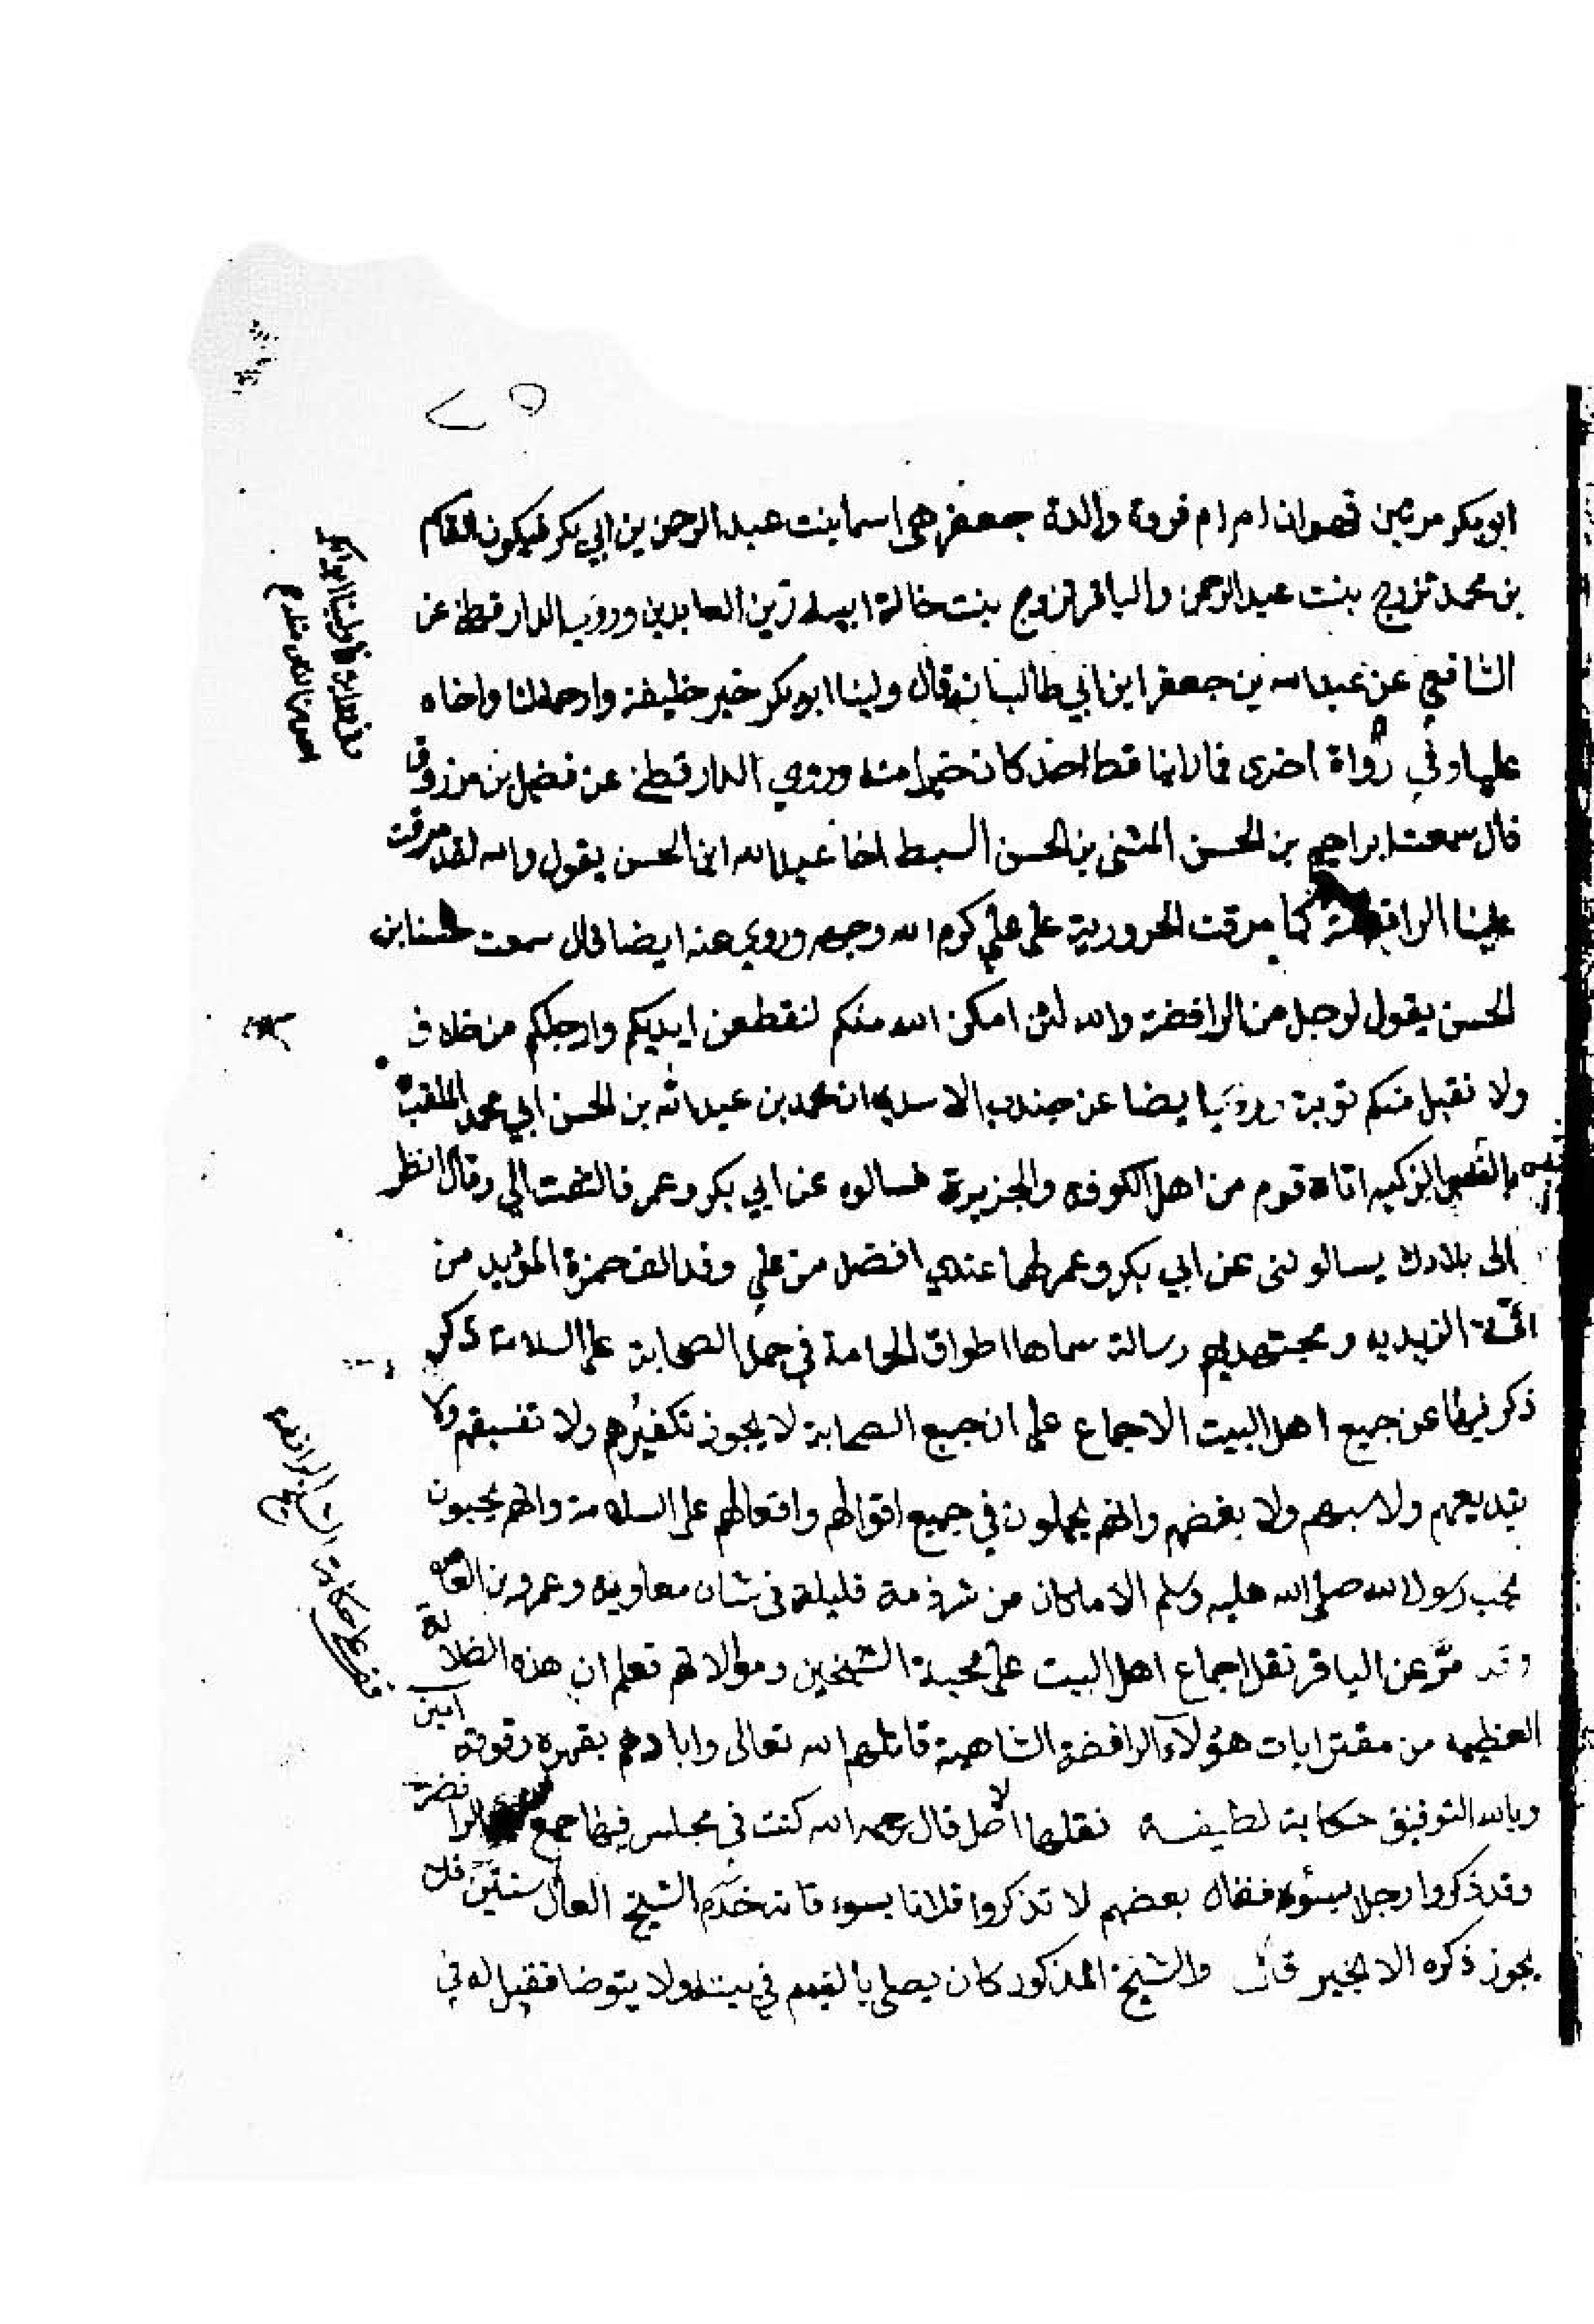 ٢٥
ابو بكر مرتين فهو ان ام ام فروة والدة جعفر هى اسما بنت عبد الرحمن بن ابي بكر فيكون القاسم
بن محمد تزوج بنت عبد الرحمن والباقر تزوج بنت خالة ابيه زين العابدين وروي الدار قطني عن
الشافعي عن عبد الله بن جعفر ابن ابي طالب انه قال ولينا ابو بكر خير خليفة وارحمه لنا واحناه
علينا وفي رواة اخرى فما راينا قط احد كان خيرا منه وروي الدار قطني عن فضيل بن مرزوق
قال سمعت ابراهيم بن الحسن المثنى بن الحسن السبط اخا عبد الله ابن الحسن يقول والله لقد مرقت
علينا الرافضة كما مرقت الحرورية على علي كرم الله وجهه وروي عنه ايضا قال سمعت حسنا بن
الحسن يقول لرجل من الرافضة والله لئن امكن الله منكم لنقطعن ايديكم وارجلكم من خلاف
ولا نقبل منكم توبة وروي ايضا عن جندب الاسدي ان محمد بن عبد الله بن الحسن ابي محمد الملقب
بالنفس الزكيه اتاه قوم من اهل الكوفه والجزيرة فسالوه عن ابي بكر وعمر فالتفت الي وقال انظر
الى بلادك يسالونى عن ابي بكر وعمر لهما عندي افضل من علي وقد الف حمزة المؤيد من
ائمة الزيديه ومجتهديهم رسالة سماها اطواق الحمامة في حمل الصحابة على السلامة ذكر
ذكر فيها عن جميع اهل البيت الاجماع على ان جميع الصحابة لا يجوز تكفيرهم ولا تفسيقهم ولا
تبديعهم ولا سبهم ولا بغضهم وانهم يحملون في جميع اقوالهم وافعالهم على السلامة وانهم يحبون
بحب رسول الله صلى الله عليه وسلم الا ما كان من شرذمة قليلة في شان معاوية وعمرو بن العاص
وقد مر عن الباقر نقل اجماع اهل البيت على محبة الشيخين وموالاتهم فعلم ان هذه الضلالة
العظيمه من مفترايات هؤلاء الرافضة الشاهية قاتلهم الله تعالى وابادهم بقهره وقوته امين
وبالله التوفيق حكاية لطيفه نقلها الاصل قال رحمه الله كنت في مجلس فيها جمع الرافضة
وقد ذكروا رجلا بسوء فقال بعضهم لا تذكروا فلانا بسوء فانه خدم الشيخ العال سنتين فلا
يجوز ذكره الا بخير قال والشيخ المذكور كان يصلي بالتيمم في بيته ولا يتوضا فقيل له في
قف على حكاية الشيخ الرافضي